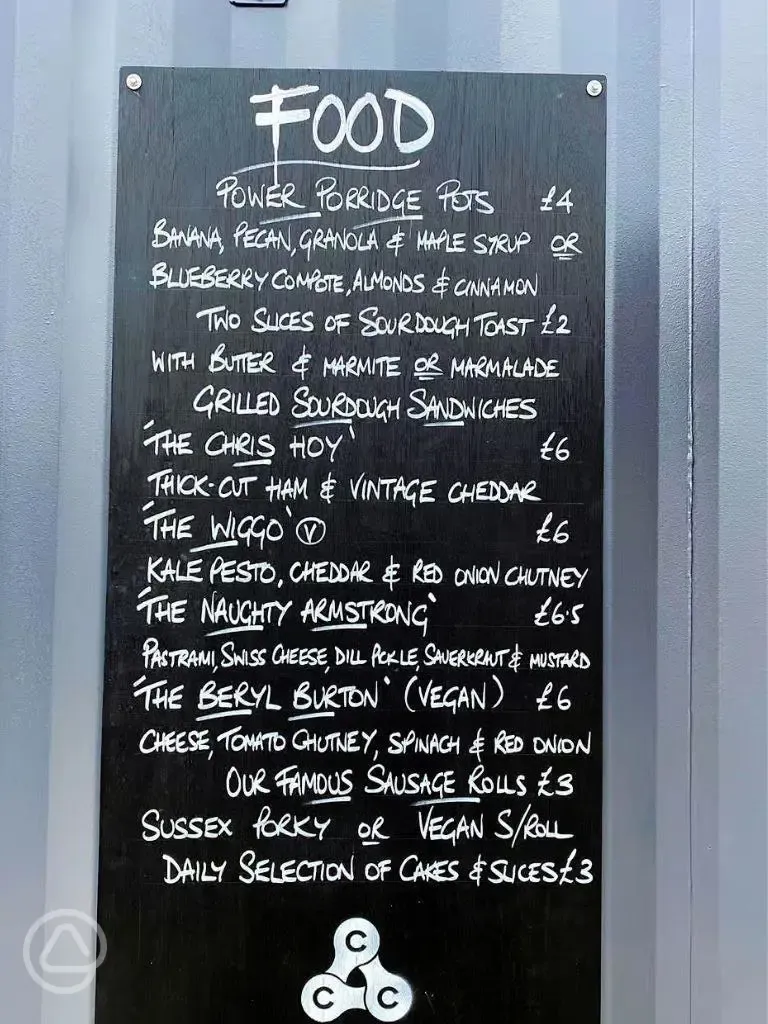 FOOD
POWER PORRIDGE POTS £4
BANANA, PECAN, GRANOLA & MAPLE SYRUP OR
BLUEBERRY COMPOTE, ALMONDS & CINNAMON
TWO SLICES OF SOURDOUGH TOAST £2
WITH BUTTER & MARMITE OR MARMALADE
GRILLED SOURDOUGH SANDWICHES
'THE CHRIS HOY' £6
THICK-CUT HAM & VINTAGE CHEDDAR
'THE WIGGO' V £6
KALE PESTO, CHEDDAR & RED ONION CHUTNEY
'THE NAUGHTY ARMSTRONG' £6.5
PASTRAMI, SWISS CHEESE, DILL PICKLE, SAUERKRAUT & MUSTARD
'THE BERYL BURTON' (VEGAN) £6
CHEESE, TOMATO CHUTNEY, SPINACH & RED ONION
OUR FAMOUS SAUSAGE ROLLS £3
SUSSEX PORKY OR VEGAN S/ROLL
DAILY SELECTION OF CAKES & SLICES £3
C
C C